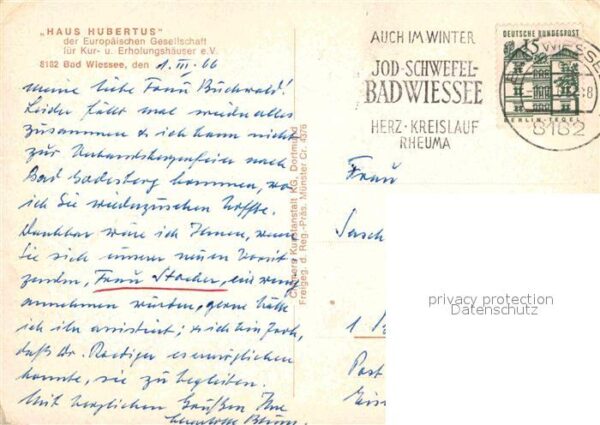 "HAUS HUBERTUS"
der Europäischen Gesellschaft
für Kur- u. Erholungshäuser e.V.
8182 Bad Wiessee, den 1. III. 66
meine liebe Frau Buchwald!
Leider fällt mal wieder alles
zusammen & ich kann nicht
zur nach
Bad Godesberg kommen, wo
ich Sie wiederzusehen hoffte.
Dankbar wäre ich Ihnen, wenn
Sie sich unserer neuen Vorsit
zenden, Frau Stocker, ein wenig
annehmen würden, gerne hätte
ich ihr assistiert; & ich bin froh,
daß Dr. es ermöglichen
konnte, sie zu begleiten.
Mit herzlichen Grüßen Ihre
Cramers Kunstanstalt KG, Dortmund
Freigeg. d. Reg.-Präs. Münster Cr. 4376
AUCH IM WINTER
JOD-SCHWEFEL-
BAD WIESSEE
HERZ·KREISLAUF
RHEUMA
DEUTSCHE BUNDESPOST
15
BERLIN-TEGEL
8182
Frau
1
Post
privacy protection
Datenschutz